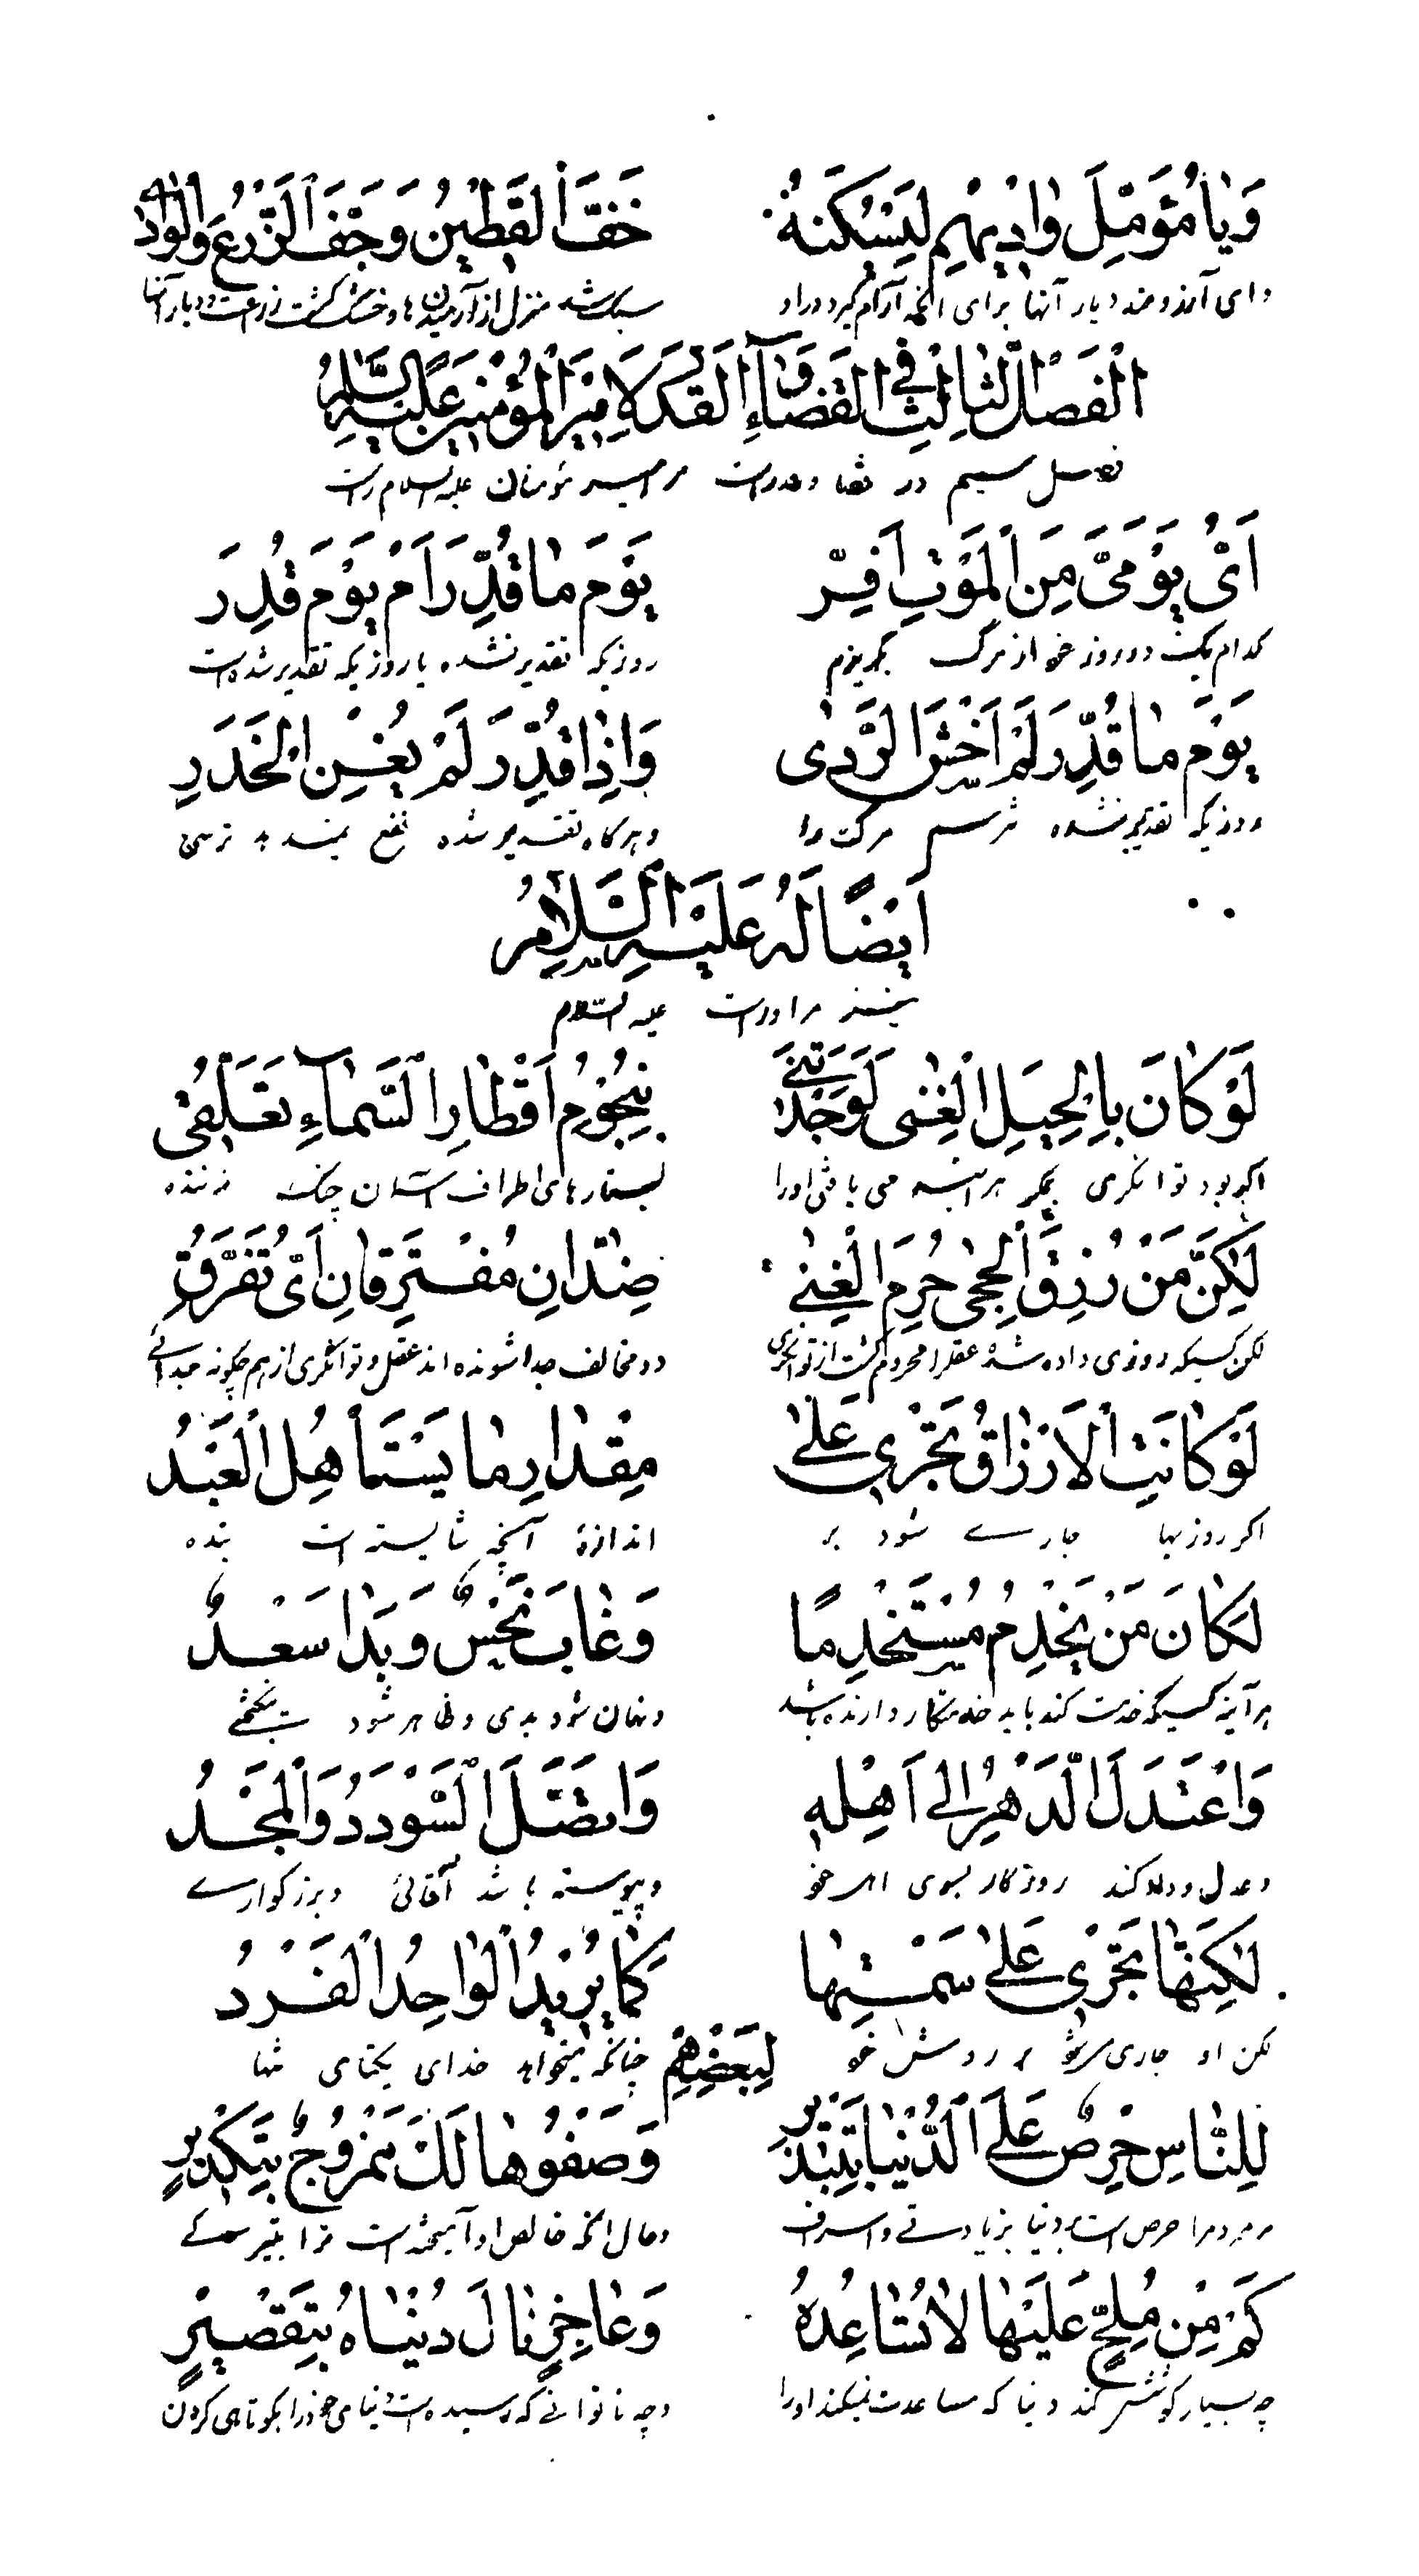 وَيٰا مُؤَمِّلَ وٰادِيهِمِ لِيَسْكُنَهُ خَفَّ الْقَطِينُ وَجَفَّ الزَّرْعُ وَالْوٰادِ
وای آرزومند دیار آنها برای آنکه آرام گیرد در او سبک شد منزل از آرمیدن ها و خشک گشت زراعت و دیار آنها
اَلْفَصْلُ الثّٰالِثُ فِي الْقَضٰاءِ وَالْقَدَرِ لِاَمِيرِ الْمُؤْمِنِينَ عَلَيْهِ السَّلٰامُ
فصل سیم در قضا وقدر است مر امیر مؤمنان علیه السلام راست
اَيَّ يَوْمَيَّ مِنَ الْمَوْتِ اَفِرّ يَوْمَ مٰا قُدِّرَ اَمْ يَوْمَ قُدِرَ
کدام یک دو روز خود از مرگ بگریزم روزیکه تقدیر نشده یا روزیکه تقدیر شده است
يَوْمَ مٰا قُدِّرَ لَمْ اَخْشَ الرَّدٰى وَاِذٰا قُدِّرَ لَمْ يُغْنِ الْحَذَرِ
روزیکه تقدیر نشده نترسم مرگ را و هرگاه تقدیر شده نفع نمیدهد ترس
اَيْضًا لَهُ عَلَيْهِ السَّلٰامُ
نیز مر او راست علیه السّلام
لَوْ كٰانَ بِالْحِيَلِ الْغِنٰى لَوَجَدْتَنِي بِنُجُومِ اَقْطٰارِ السَّمٰاءِ تَعَلُّقِي
اگر بود توانگری بمکر هر آینه می یافتی او را بستارهای اطراف آسمان چنگ زننده
لٰكِنَّ مَنْ رُزِقَ الْحِجٰى حُرِمَ الْغِنٰى ضِدّٰانِ مُفْتَرِقٰانِ اَيَّ تَفَرُّقِ
لکن کسیکه روزی داده شد عقل را محروم گشت از توانگری دو مخالف جدا شونده اند عقل و توانگری از هم چگونه جدائی
لَوْ كٰانَتِ الْاَرْزٰاقُ تَجْرِي عَلٰى مِقْدٰارِ مٰا يَسْتَأْهِلُ الْعَبْدُ
اگر روزیها جاری شود بر اندازهٔ آنچه شایسته است بنده
لَكٰانَ مَنْ يَخْدِمُ مُسْتَخْدِمًا وَغٰابَ نَحْسٌ وَبَدٰا سَعْدٌ
هر آینه کسیکه خدمت کند باید خدمتکار دارنده باشد و نهان شود بدی و ظاهر شود
وَاعْتَدَلَ الدَّهْرُ اِلٰى اَهْلِهِ وَاتَّصَلَ السُّوْدَدُ وَالْمَجْدُ
و عدل و داد کند روزگار بسوی اهل خود و پیوسته باشد آقائی و بزرگواری
لٰكِنَّهٰا تَجْرِي عَلٰى سَمْتِهٰا كَمٰا يُرِيدُ الْوٰاحِدُ الْفَرْدُ
لکن او جاری میشود بر روش خود چنانکه میخواهد خدای یکتای تنها
لِبَعْضِهِمْ
لِلنّٰاسِ حِرْصٌ عَلَى الدُّنْيٰا بِتَبْذِيرٍ وَصَفْوُهٰا لَكَ مَمْزُوجٌ بِتَكْدِيرٍ
مر مردم را حرص است بدنیا بزیادتی و اسراف و حال آنکه خالص او آمیخته است ترا بتیرگی
كَمْ مِنْ مُلِحٍّ عَلَيْهٰا لٰا تُسٰاعِدُهُ وَعٰاجِزٍ نٰالَ دُنْيٰاهُ بِتَقْصِيرٍ
چه بسیار کوشش کند دنیا که مساعدت نمیکند او را و چه ناتوانی که رسیده است دنیای خود را بکوتاهی کردن